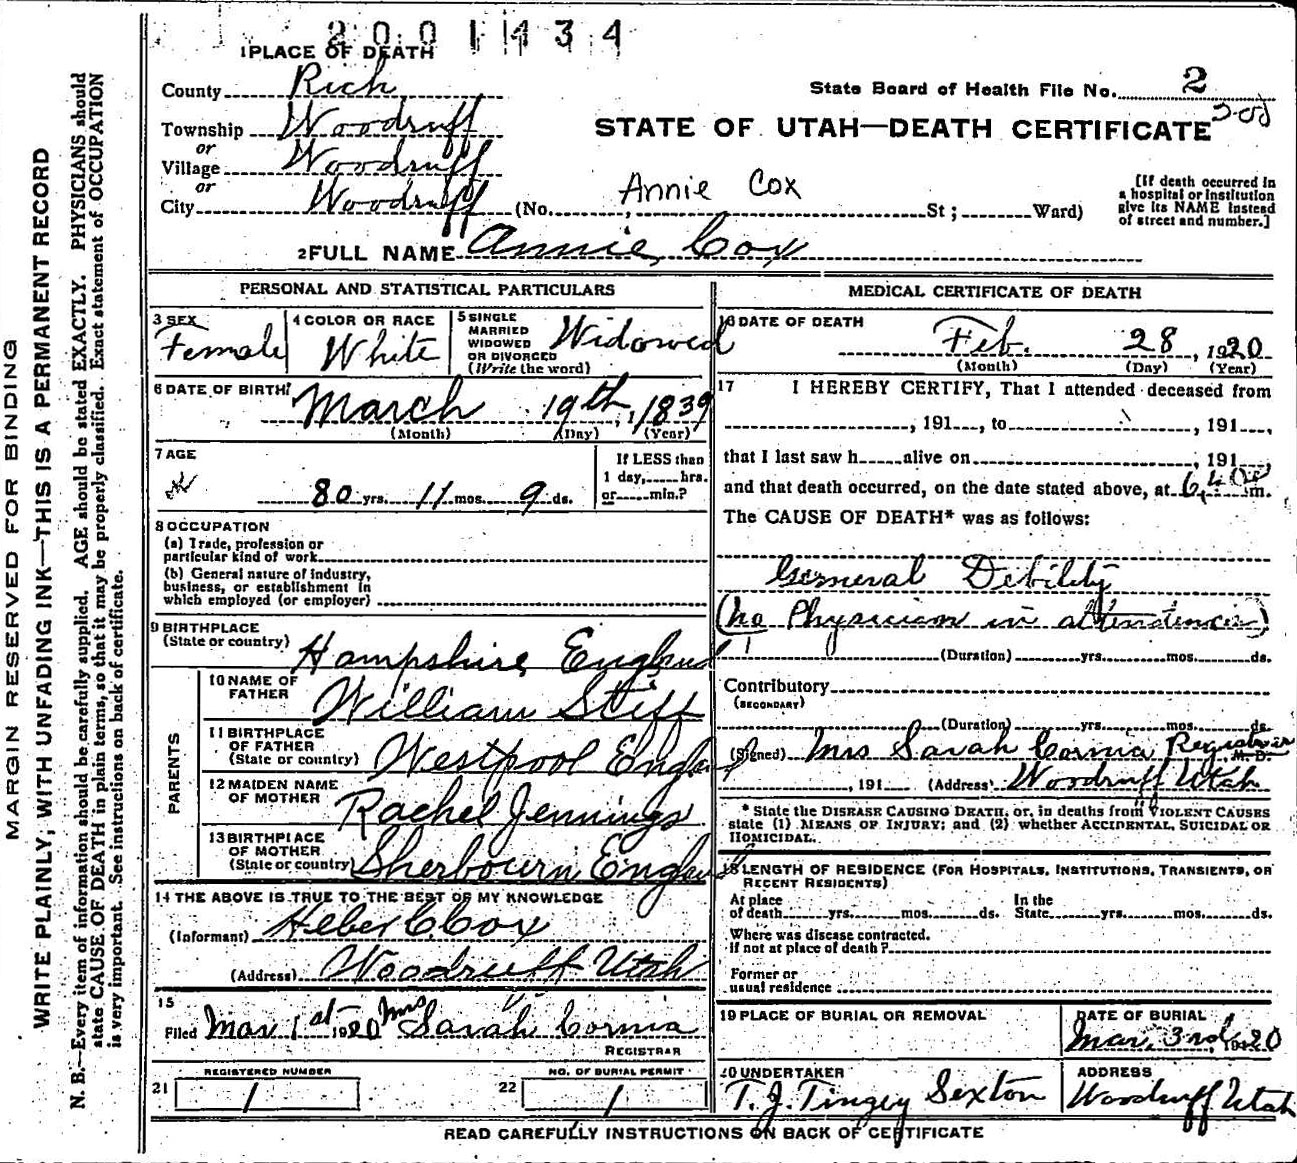 2001434
1 PLACE OF DEATH
County Rich
State Board of Health File No. 2
Township Woodruff
or
STATE OF UTAH—DEATH CERTIFICATE
Village Woodruff
or
City Woodruff (No. Annie Cox St; Ward)
[If death occurred in
a hospital or institution
give its NAME instead
of street and number.]
2 FULL NAME Annie Cox
PERSONAL AND STATISTICAL PARTICULARS
3 SEX
Female
4 COLOR OR RACE
White
5 SINGLE
MARRIED
WIDOWED
OR DIVORCED
(Write the word)
Widowed
6 DATE OF BIRTH
March 19th, 1839
(Month) (Day) (Year)
7 AGE
80 yrs. 11 mos. 9 ds.
If LESS than
1 day, hrs.
or min.?
8 OCCUPATION
(a) Trade, profession or
particular kind of work
(b) General nature of industry,
business, or establishment in
which employed (or employer)
9 BIRTHPLACE
(State or country) Hampshire England
PARENTS
10 NAME OF
FATHER William Stiff
11 BIRTHPLACE
OF FATHER
(State or country) Westpool England
12 MAIDEN NAME
OF MOTHER Rachel Jennings
13 BIRTHPLACE
OF MOTHER
(State or country) Sherbourn England
14 THE ABOVE IS TRUE TO THE BEST OF MY KNOWLEDGE
(Informant) Heber C. Cox
(Address) Woodruff Utah
15
Filed Mar 1st 1920 Mrs Sarah Cornia
REGISTRAR
REGISTERED NUMBER
21 1
NO. OF BURIAL PERMIT
22 1
MEDICAL CERTIFICATE OF DEATH
16 DATE OF DEATH
Feb. 28, 1920
(Month) (Day) (Year)
17 I HEREBY CERTIFY, That I attended deceased from
, 191 , to , 191 ,
that I last saw h alive on , 191
and that death occurred, on the date stated above, at 6,40 m.
The CAUSE OF DEATH* was as follows:
General Debility
(no Physician in attendence)
(Duration) yrs. mos. ds.
Contributory
(SECONDARY)
(Duration) yrs. mos. ds.
(Signed) Mrs Sarah Cornia Registrar M. D.
, 191 (Address) Woodruff Utah
* State the DISEASE CAUSING DEATH; or, in deaths from VIOLENT CAUSES
state (1) MEANS OF INJURY; and (2) whether ACCIDENTAL, SUICIDAL OR
HOMICIDAL.
18 LENGTH OF RESIDENCE (FOR HOSPITALS, INSTITUTIONS, TRANSIENTS, OR
RECENT RESIDENTS)
At place In the
of death yrs. mos. ds. State yrs. mos. ds.
Where was disease contracted.
if not at place of death?
Former or
usual residence
19 PLACE OF BURIAL OR REMOVAL
DATE OF BURIAL
Mar. 3rd, 1920
20 UNDERTAKER
T. J. Tingey Sexton
ADDRESS
Woodruff Utah
READ CAREFULLY INSTRUCTIONS ON BACK OF CERTIFICATE
MARGIN RESERVED FOR BINDING
WRITE PLAINLY, WITH UNFADING INK—THIS IS A PERMANENT RECORD
N. B.—Every item of information should be carefully supplied. AGE should be stated EXACTLY. PHYSICIANS should
state CAUSE OF DEATH in plain terms, so that it may be properly classified. Exact statement of OCCUPATION
is very important. See instructions on back of certificate.